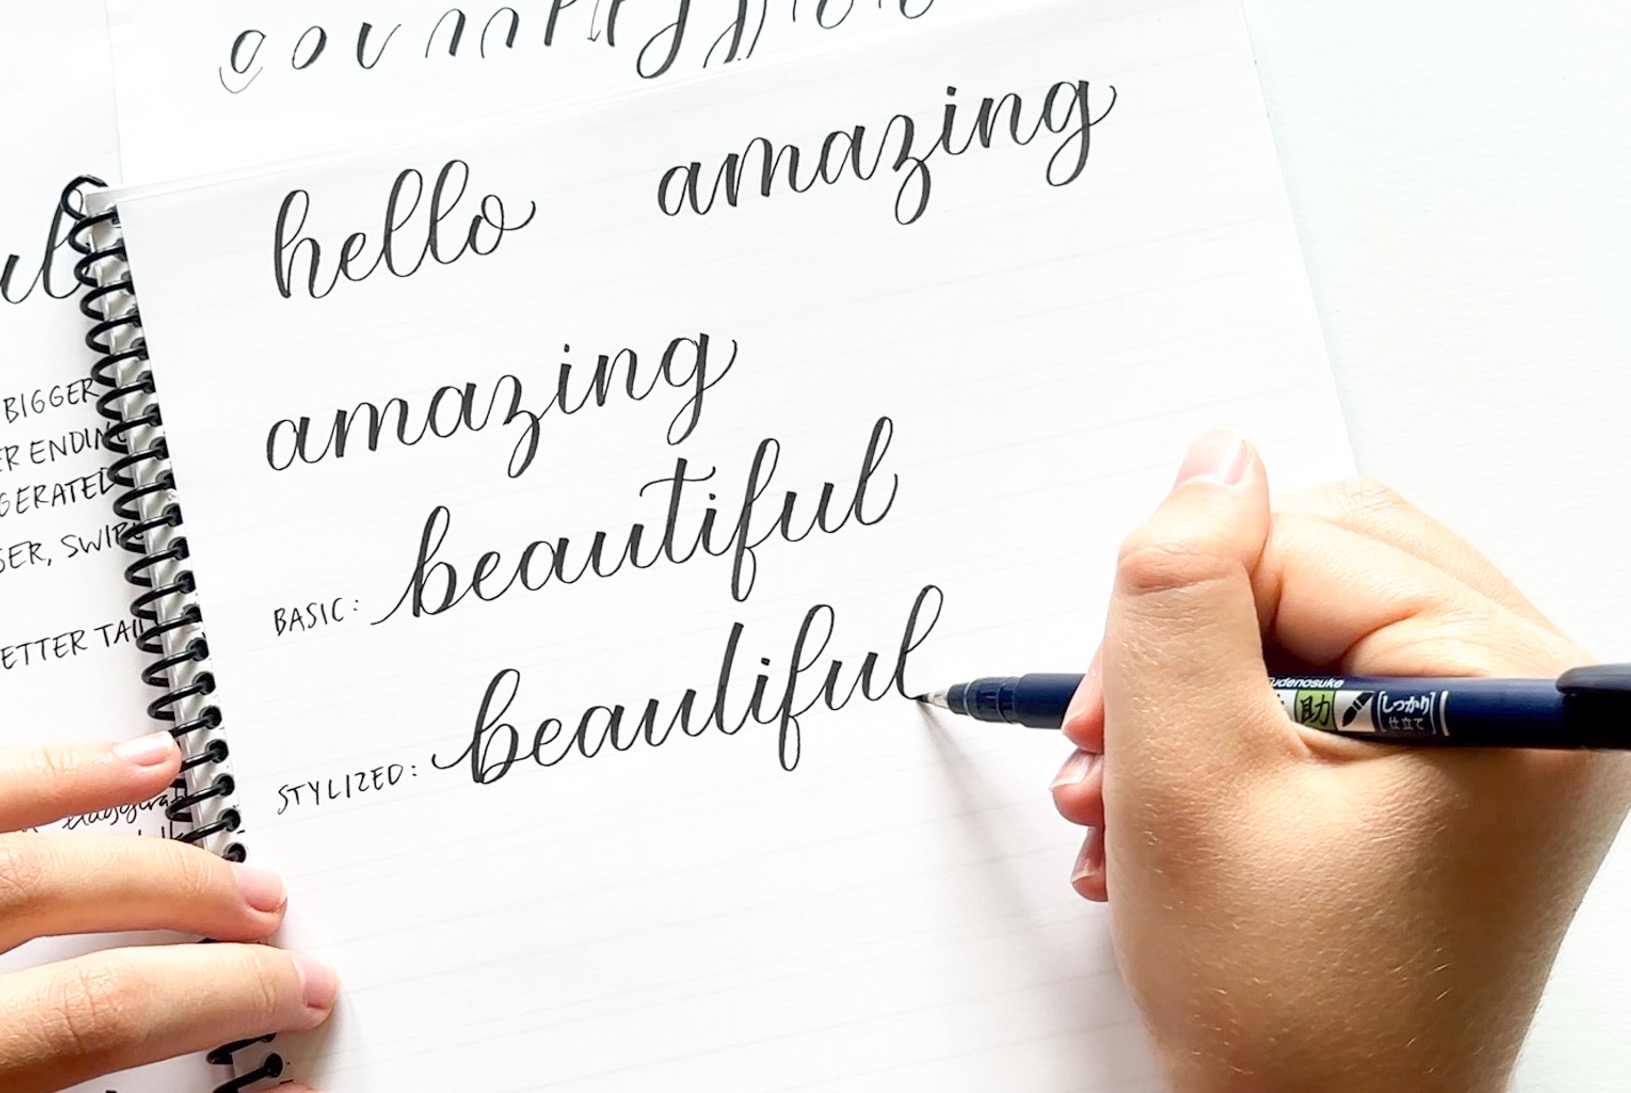 hello amazing
amazing
BASIC: beautiful
STYLIZED: beautiful
BIGGER
SER, SWIR
ETTER TAIL
udenosuke
助 [しっかり
仕立て]